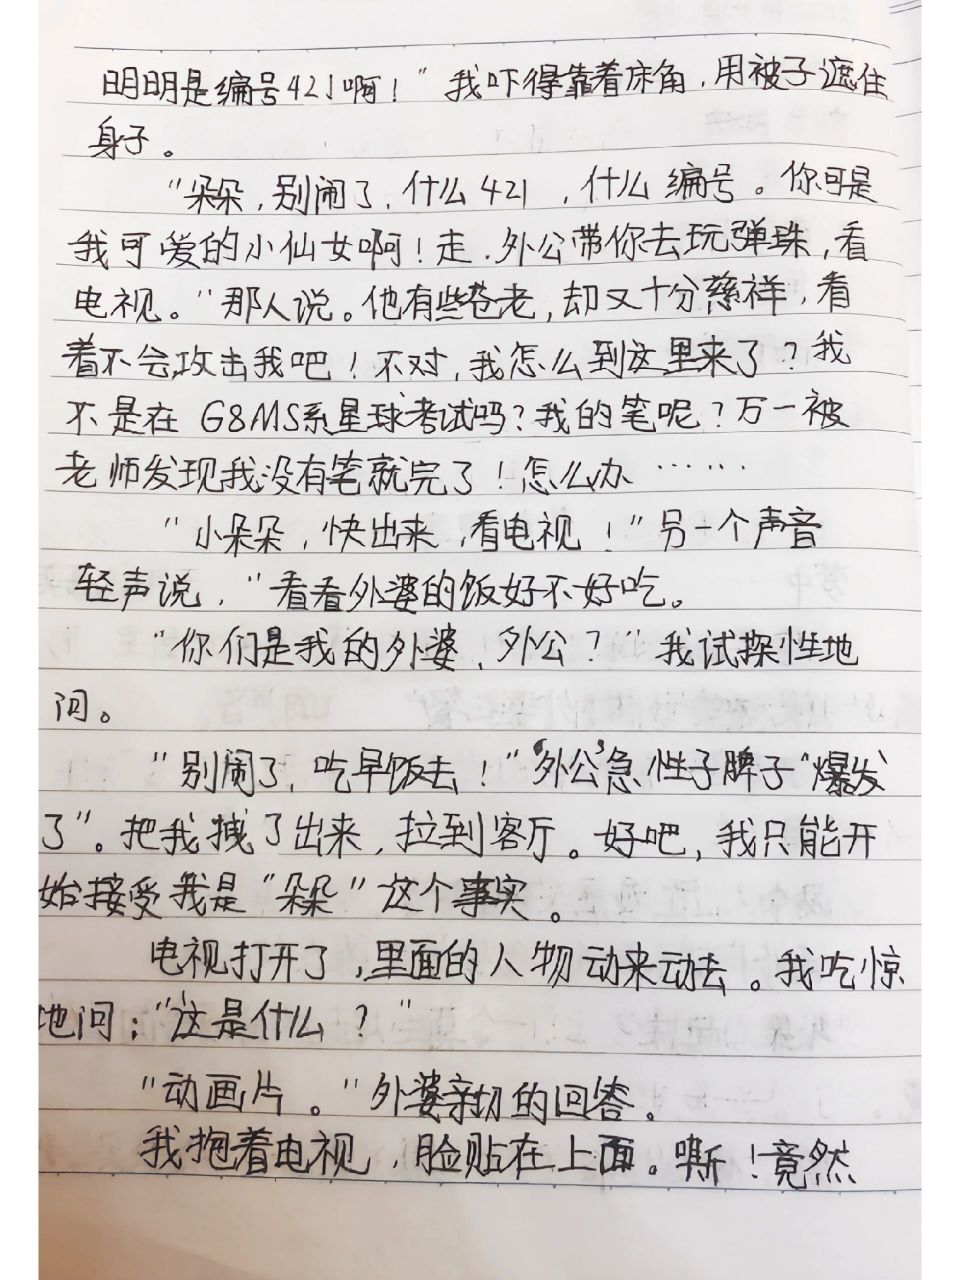 明明是编号421啊！”我吓得靠着床角，用被子遮住
身子。
“朵朵，别闹了，什么421，什么编号。你可是
我可爱的小仙女啊！走．外公带你去玩弹珠，看
电视。”那人说。他有些苍老，却又十分慈祥，看
着不会攻击我吧！不对，我怎么到这里来了？我
不是在G8MS系星球考试吗？我的笔呢？万一被
老师发现我没有笔就完了！怎么办……
“小朵朵，快出来，看电视！”另一个声音
轻声说，“看看外婆的饭好不好吃。
“你们是我的外婆、外公？”我试探性地
问。
“别闹了，吃早饭去！”‘外公’急性子脾子“爆发
了”。把我拽了出来，拉到客厅。好吧，我只能开
始接受我是“朵朵”这个事实。
电视打开了，里面的人物动来动去。我吃惊
地问：“这是什么？”
“动画片。”外婆亲切的回答。
我抱着电视，脸贴在上面。嘶！竟然